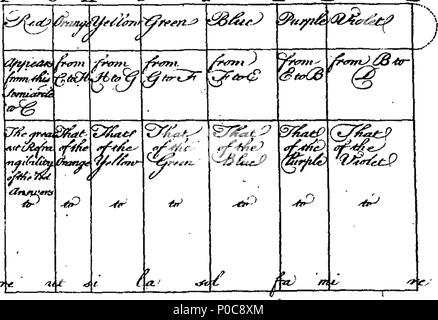 Red Orange Yellow Green Blue Purple Violet
Appears from this Semicircle to C
from C to H
from H to G
from G to F
from F to E
from E to B
from B to
The great
est Refra
ngibility
of the Red
Answers
to
That
of the
Orange
to
That
of the
Yellow
to
That
of the
Green
to
That
of the
Blue
to
That
of the
Purple
to
That
of the
Violet
to
re ut si la sol fa mi re
alamy
Image ID: P0C8XM
www.alamy.com